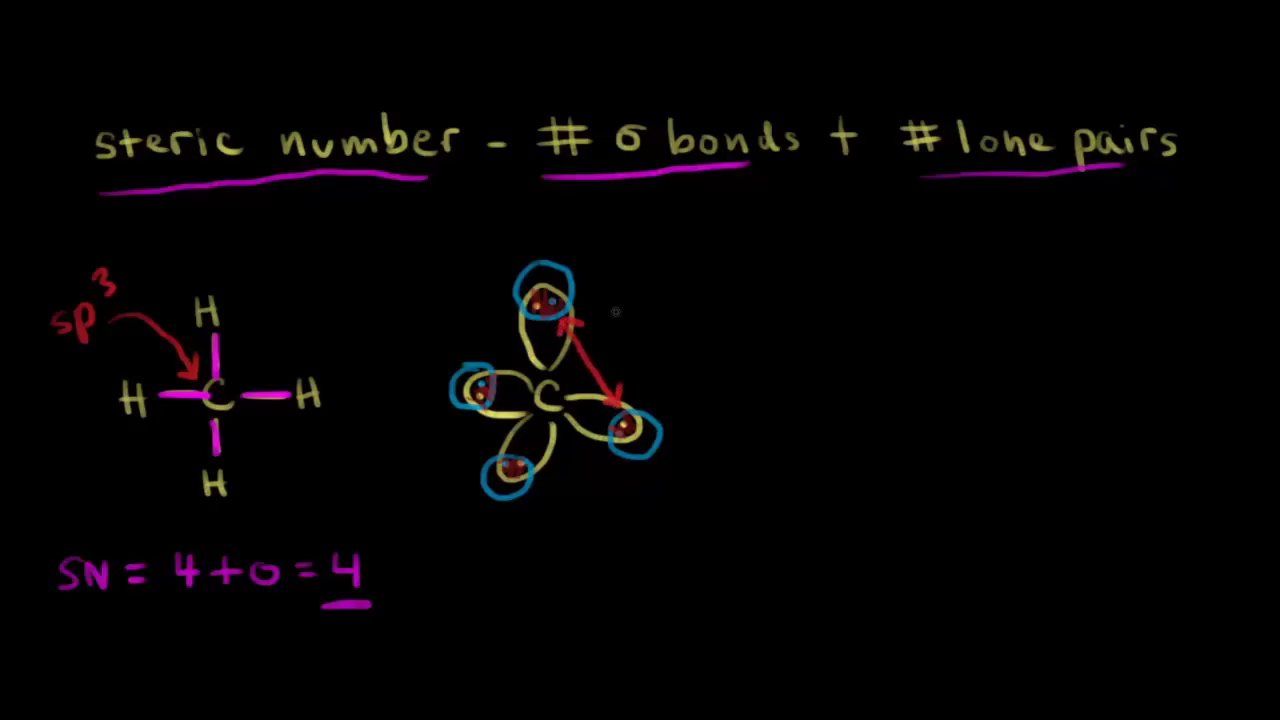 steric number - # σ bonds + # lone pairs
sp³
H
H C H
H
C
SN = 4 + 0 = 4